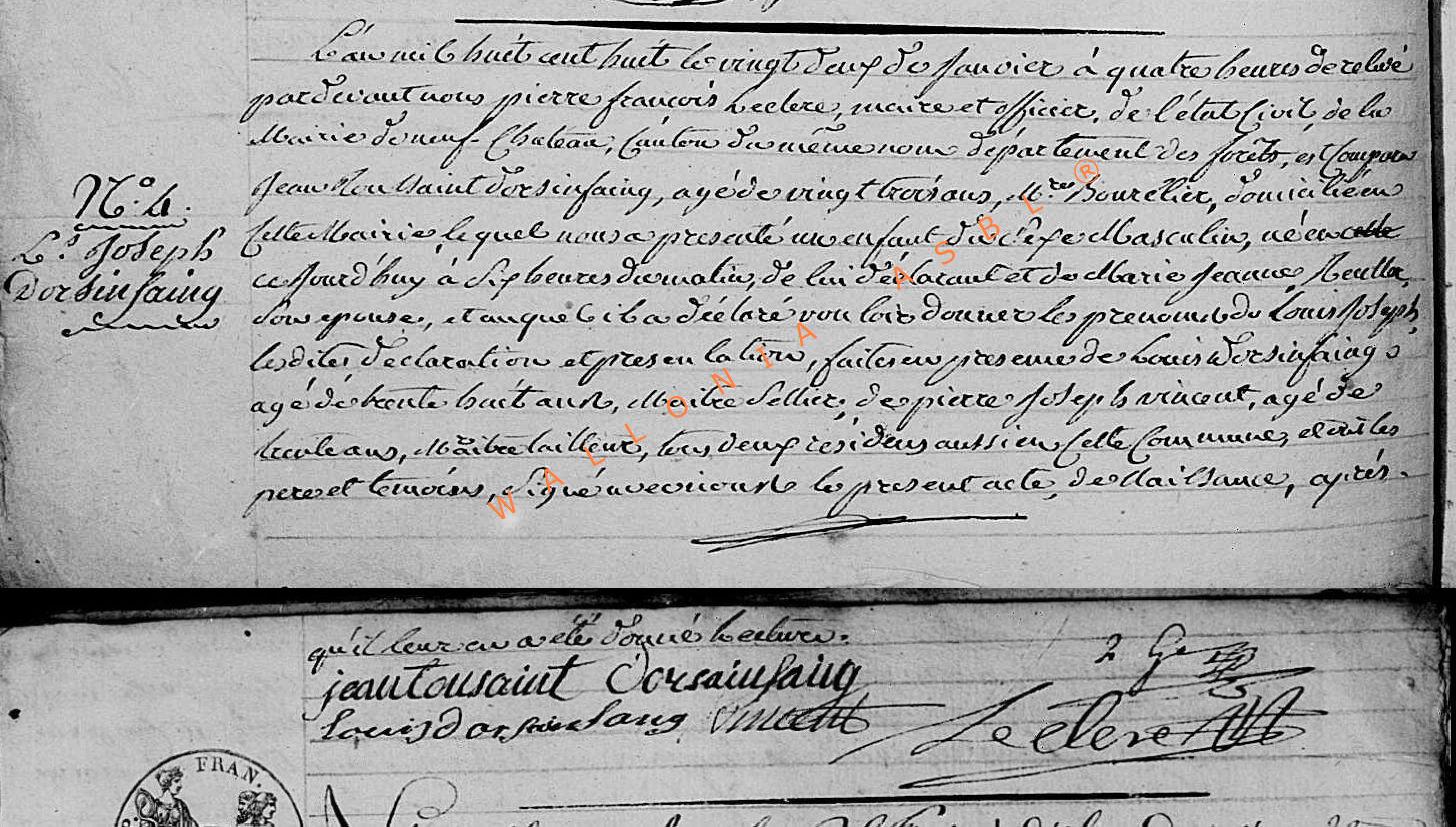 L'an mil huit cent huit le vingt deux de Janvier à quatre heures de relevé
pardevant nous pierre françois Leclere, maire et officier, de l'état Civil, de la
Mairie de neuf-Chateau, Canton du même nom département des forêts, est Comparu
Jean Toussaint Dorsinfaing, agé de vingt trois ans, M.tre Bourelier, domicilié en
Cette Mairie lequel nous a presenté un enfant du sexe Masculin, né en cette
ce Jourd'huy à Six heures du matin, de lui déclarant et de Marie Jeanne
Son epouse, et auquel il a déclaré vouloir donner les prenoms de Louis Joseph,
les dites déclaration et presentation, faites en presence de Louis Dorsinfaing
agé de trente huit ans, Maitre Sellier, de pierre Joseph vincent, agé de
trente ans, Maitre tailleur, tous deux résidens aussi en Cette Commune, et ont les
pere et temoins, Signé avec nous le present acte, de Naissance, après
N.o 4.
L.s Joseph
Dorsinfaing
qu'il leur en a été donné lecture.
jean tousaint Dorsainfaing
Louis Dorsinfaing vincent
Leclere
FRAN.
WALLONIA ASBL ®